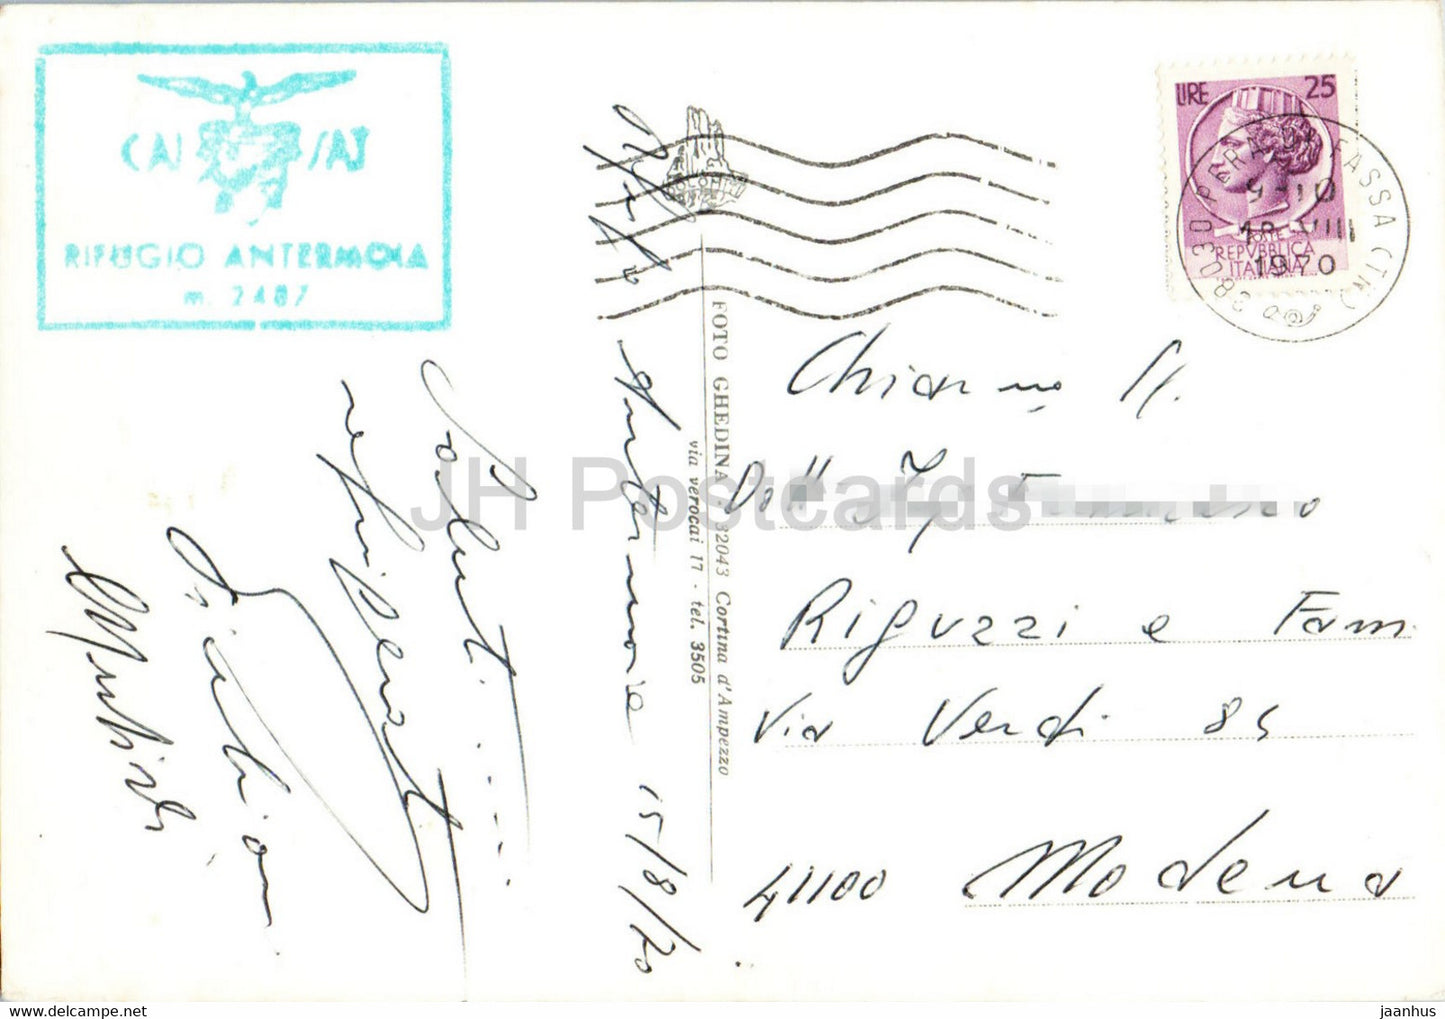 CAI SAT
RIFUGIO ANTERMOIA
m. 2487
LIRE 25
POSTE
REPVBBLICA
ITALIANA
38030 PERA DI FASSA (TN)
9-10
18 VIII
1970
Antermoia 15/8/70
Saluti ....
refrigeranti
FOTO GHEDINA - 32043 Cortina d'Ampezzo
via verocai 17 - tel. 3505
Chiar.mo
Dott.
Riguzzi e Fam.
Via Verdi 85
41100 Modena
JH Postcards
jaanhus
www.delcampe.net